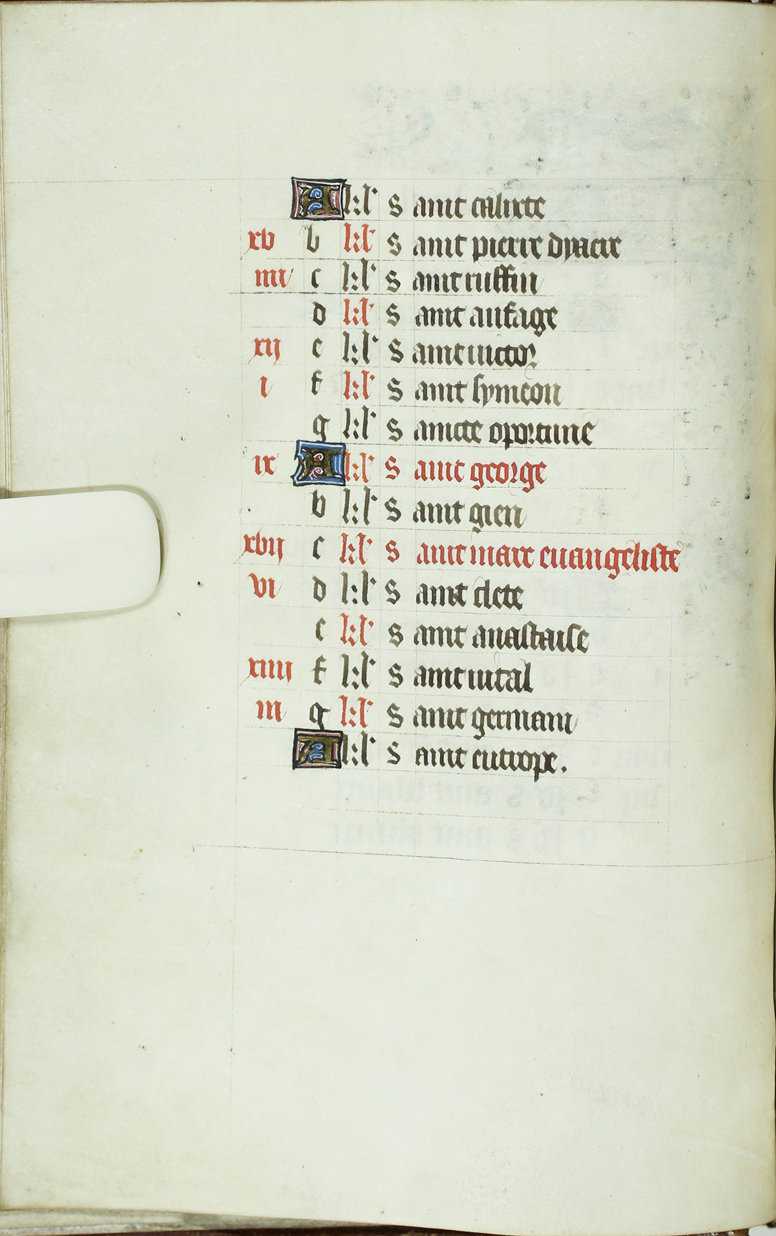 A kl' S aint calixte
xv b kl' S aint pierre dyacre
iiii c kl' S aint ruffin
d kl' S aint aufage
xii e kl' S aint victor
i f kl' S aint symeon
g kl' S aincte oportune
ix A kl' S aint george
b kl' S aint gien
xvii c kl' S aint marc euangeliste
vi d kl' S aint clete
e kl' S aint anastaise
xiiii f kl' S aint vital
iii g kl' S aint germain
A kl' S aint eutrope.